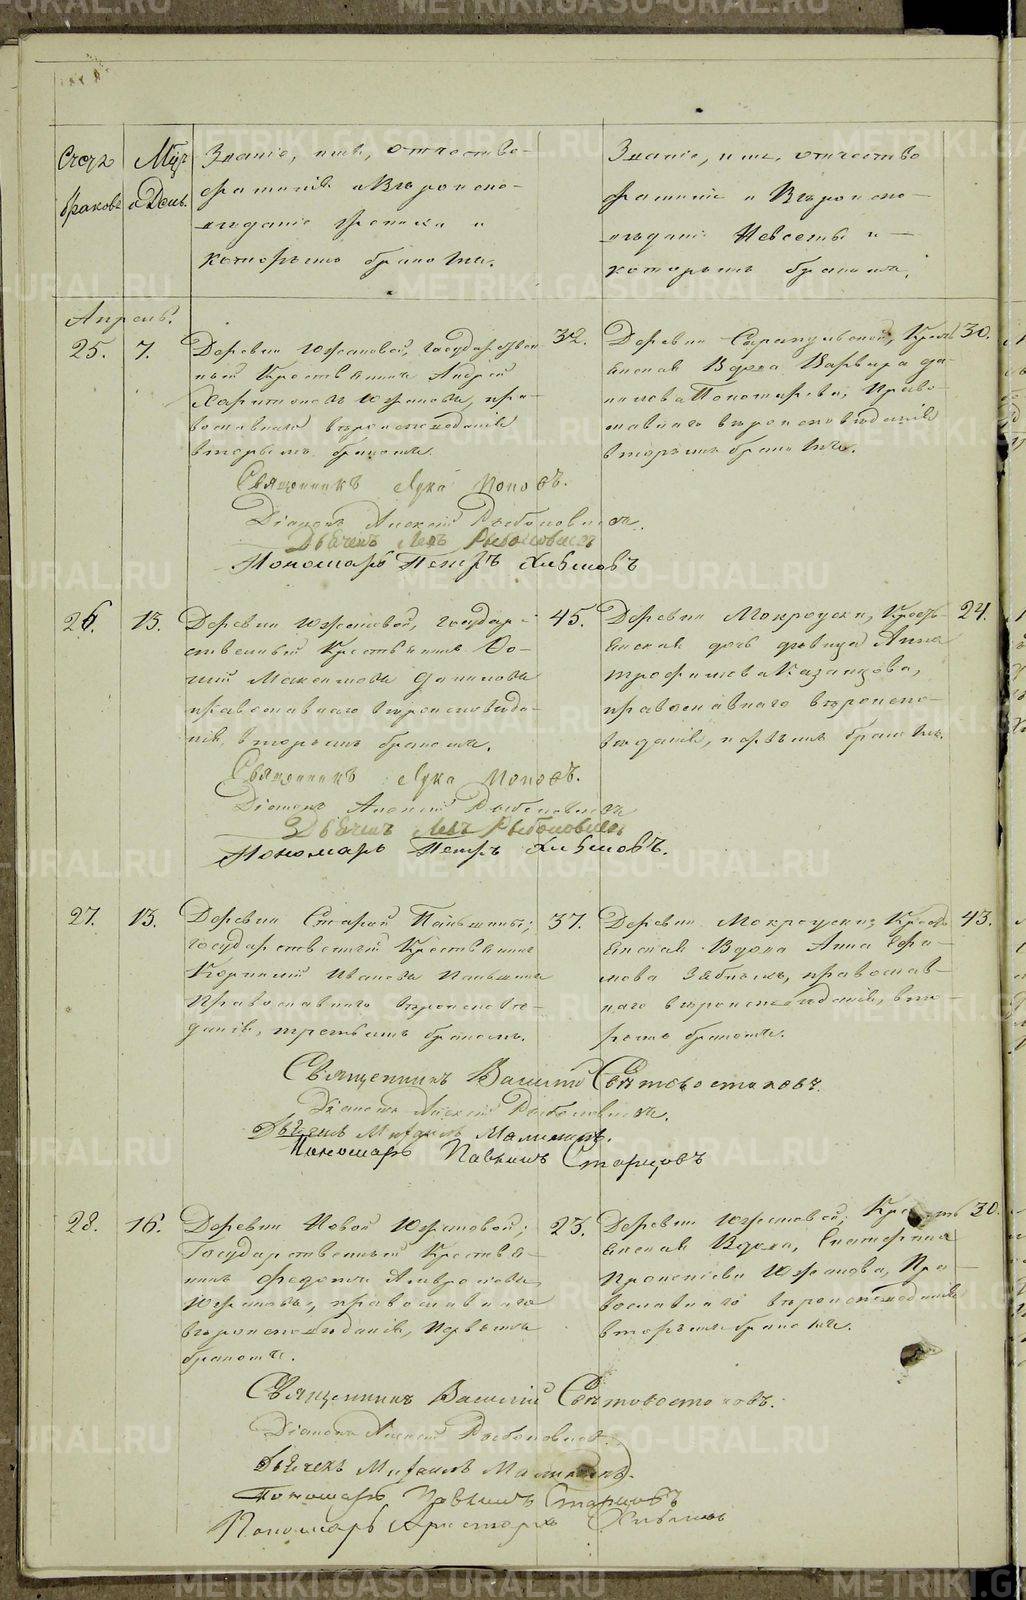 METRIKI.GASO-URAL.RU
Счетъ браковъ
Мѣц. и День.
Званіе, имя, отчество
фамилія и Вѣроиспо-
вѣданіе Жениха и
которымъ бракомъ.
Званіе, имя, отчество
фамилія и Вѣроиспо-
вѣданіе Невѣсты и
которымъ бракомъ.
Апрель.
25. 7.
Деревни Южаковой, государствен
ный Крестьянинъ Андрей
Харитоновъ Южаковъ, пра-
вославнаго вѣроисповѣданія
вторымъ бракомъ.
32.
Деревни Сарапульской, Крест
янская Вдова Варвара Да-
нилова Пономарева, право-
славнаго вѣроисповѣданія
вторымъ бракомъ.
30.
Священникъ Лука Поповъ.
Діаконъ Алексій Рыболовлевъ.
Дьячекъ Левъ Рыболовлевъ
Пономарь Петръ Хлѣбновъ
26. 13.
Деревни Южаковой, государ-
ственный Крестьянинъ
Максимовъ Даниловъ
православнаго вѣроисповѣда-
нія, вторымъ бракомъ.
45.
Деревни Мокроуски, Крест
янская дочь девица Анна
Трофимова Казанцова,
православнаго вѣроиспо-
вѣданія, первымъ бракомъ.
24.
Священникъ Лука Поповъ.
Діаконъ Алексій Рыболовлевъ
Дьячекъ Левъ Рыболовлевъ
Пономарь Петръ Хлѣбновъ.
27. 13.
Деревни Старой Паньшины,
государственный Крестьянинъ
Корнилий Ивановъ Паньшинъ
Православнаго вѣроисповѣ-
данія, третьимъ бракомъ.
37.
Деревни Мокроуски, Крест
янская Вдова Анна
православ-
наго вѣроисповѣданія, вто-
рымъ бракомъ.
43.
Священникъ Василій Свѣтовостоковъ.
Діаконъ Алексій Рыболовлевъ.
Дьячекъ Михаилъ
Пономарь Павлинъ Старцовъ
28. 16.
Деревни Новой Южаковой,
Государственный Крестья-
нинъ Федотъ Амвросовъ
Южаковъ, православнаго
вѣроисповѣданія, первымъ
бракомъ.
23.
Деревни Южаковой, Крест
янская Вдова, Екатерина
Прокопіева Южакова, Пра-
вославнаго вѣроисповѣданія
вторымъ бракомъ.
30.
Священникъ Василій Свѣтовостоковъ.
Діаконъ Алексій Рыболовлевъ.
Дьячекъ Михаилъ
Пономарь Павлинъ Старцовъ
Пономарь